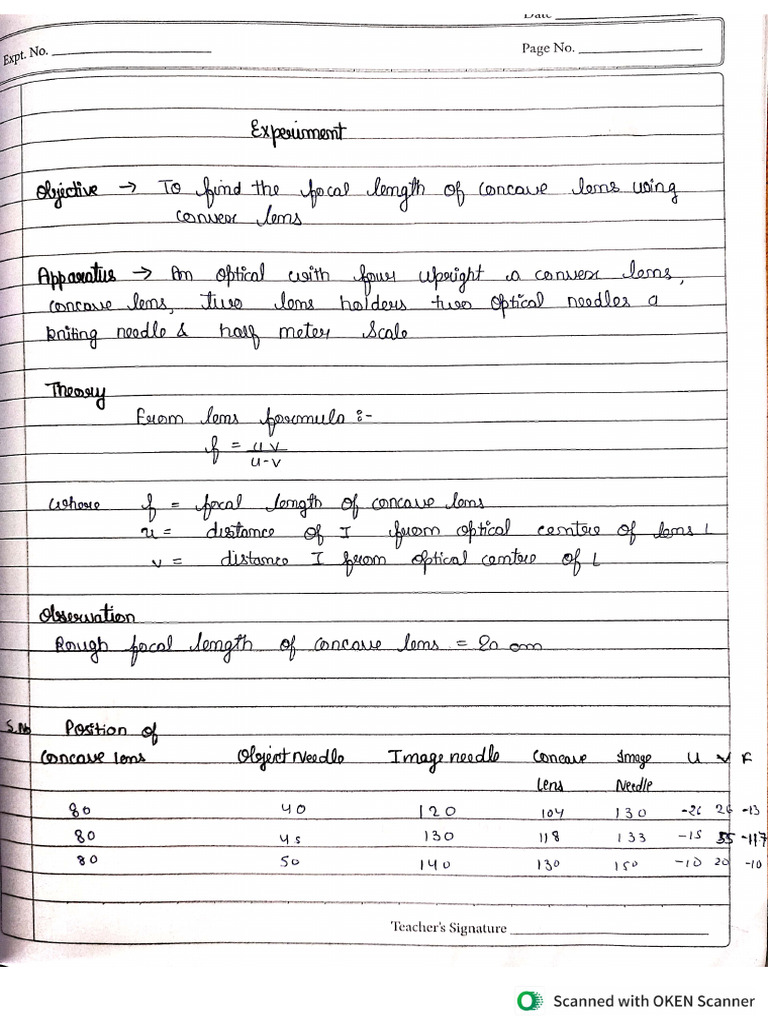 Date
Expt. No.
Page No.
Experiment
Objective → To find the focal length of concave lens using
convex lens
Apparatus → An optical with four upright a convex lens,
concave lens, two lens holders two optical needles a
kniting needle & half meter Scale
Theory
From lens formula :-
f = uv
u-v
where f = focal length of concave lens
u = distance of I from optical centre of lens L
v = distance I from optical centre of L
Observation
Rough focal length of concave lens = 20 cm
S.No Position of
concave lens Object Needle Image needle Concave Image U V F
Lens Needle
80 40 120 104 130 -26 26 -13
80 45 130 118 133 -15 55 -117
80 50 140 130 150 -10 20 -10
Teacher's Signature
Scanned with OKEN Scanner